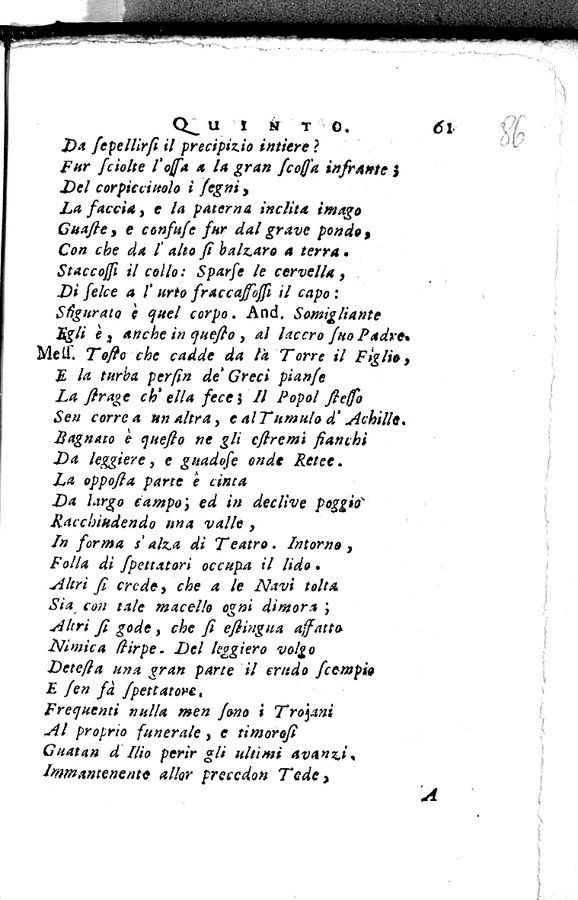 QUINTO. 61 86
Da ſepellirſi il precipizio intiere?
Fur ſciolte l'oſſa a la gran ſcoſſa infrante;
Del corpicciuolo i ſegni,
La faccia, e la paterna inclita imago
Guaſte, e confuſe fur dal grave pondo,
Con che da l'alto ſi balzaro a terra.
Staccoſſi il collo: Sparſe le cervella,
Di ſelce a l'urto fraccaſſoſſi il capo:
Sfigurato è quel corpo. And. Somigliante
Egli è, anche in queſto, al lacero ſuo Padre.
Meſſ. Toſto che cadde da là Torre il Figlio,
E la turba perſin de' Greci pianſe
La ſtrage ch'ella fece; Il Popol ſteſſo
Sen corre a un altra, e al Tumulo d'Achille.
Bagnato è queſto ne gli eſtremi fianchi
Da leggiere, e guadoſe onde Retee.
La oppoſta parte è cinta
Da largo campo; ed in declive poggio
Racchiudendo una valle,
In forma s'alza di Teatro. Intorno,
Folla di ſpettatori occupa il lido.
Altri ſi crede, che a le Navi tolta
Sia con tale macello ogni dimora;
Altri ſi gode, che ſi eſtingua affatto
Nimica ſtirpe. Del leggiero volgo
Deteſta una gran parte il crudo ſcempio
E ſen fà ſpettatore.
Frequenti nulla men ſono i Trojani
Al proprio funerale, e timoroſi
Guatan d'Ilio perir gli ultimi avanzi.
Immantenente allor precedon Tede,
A